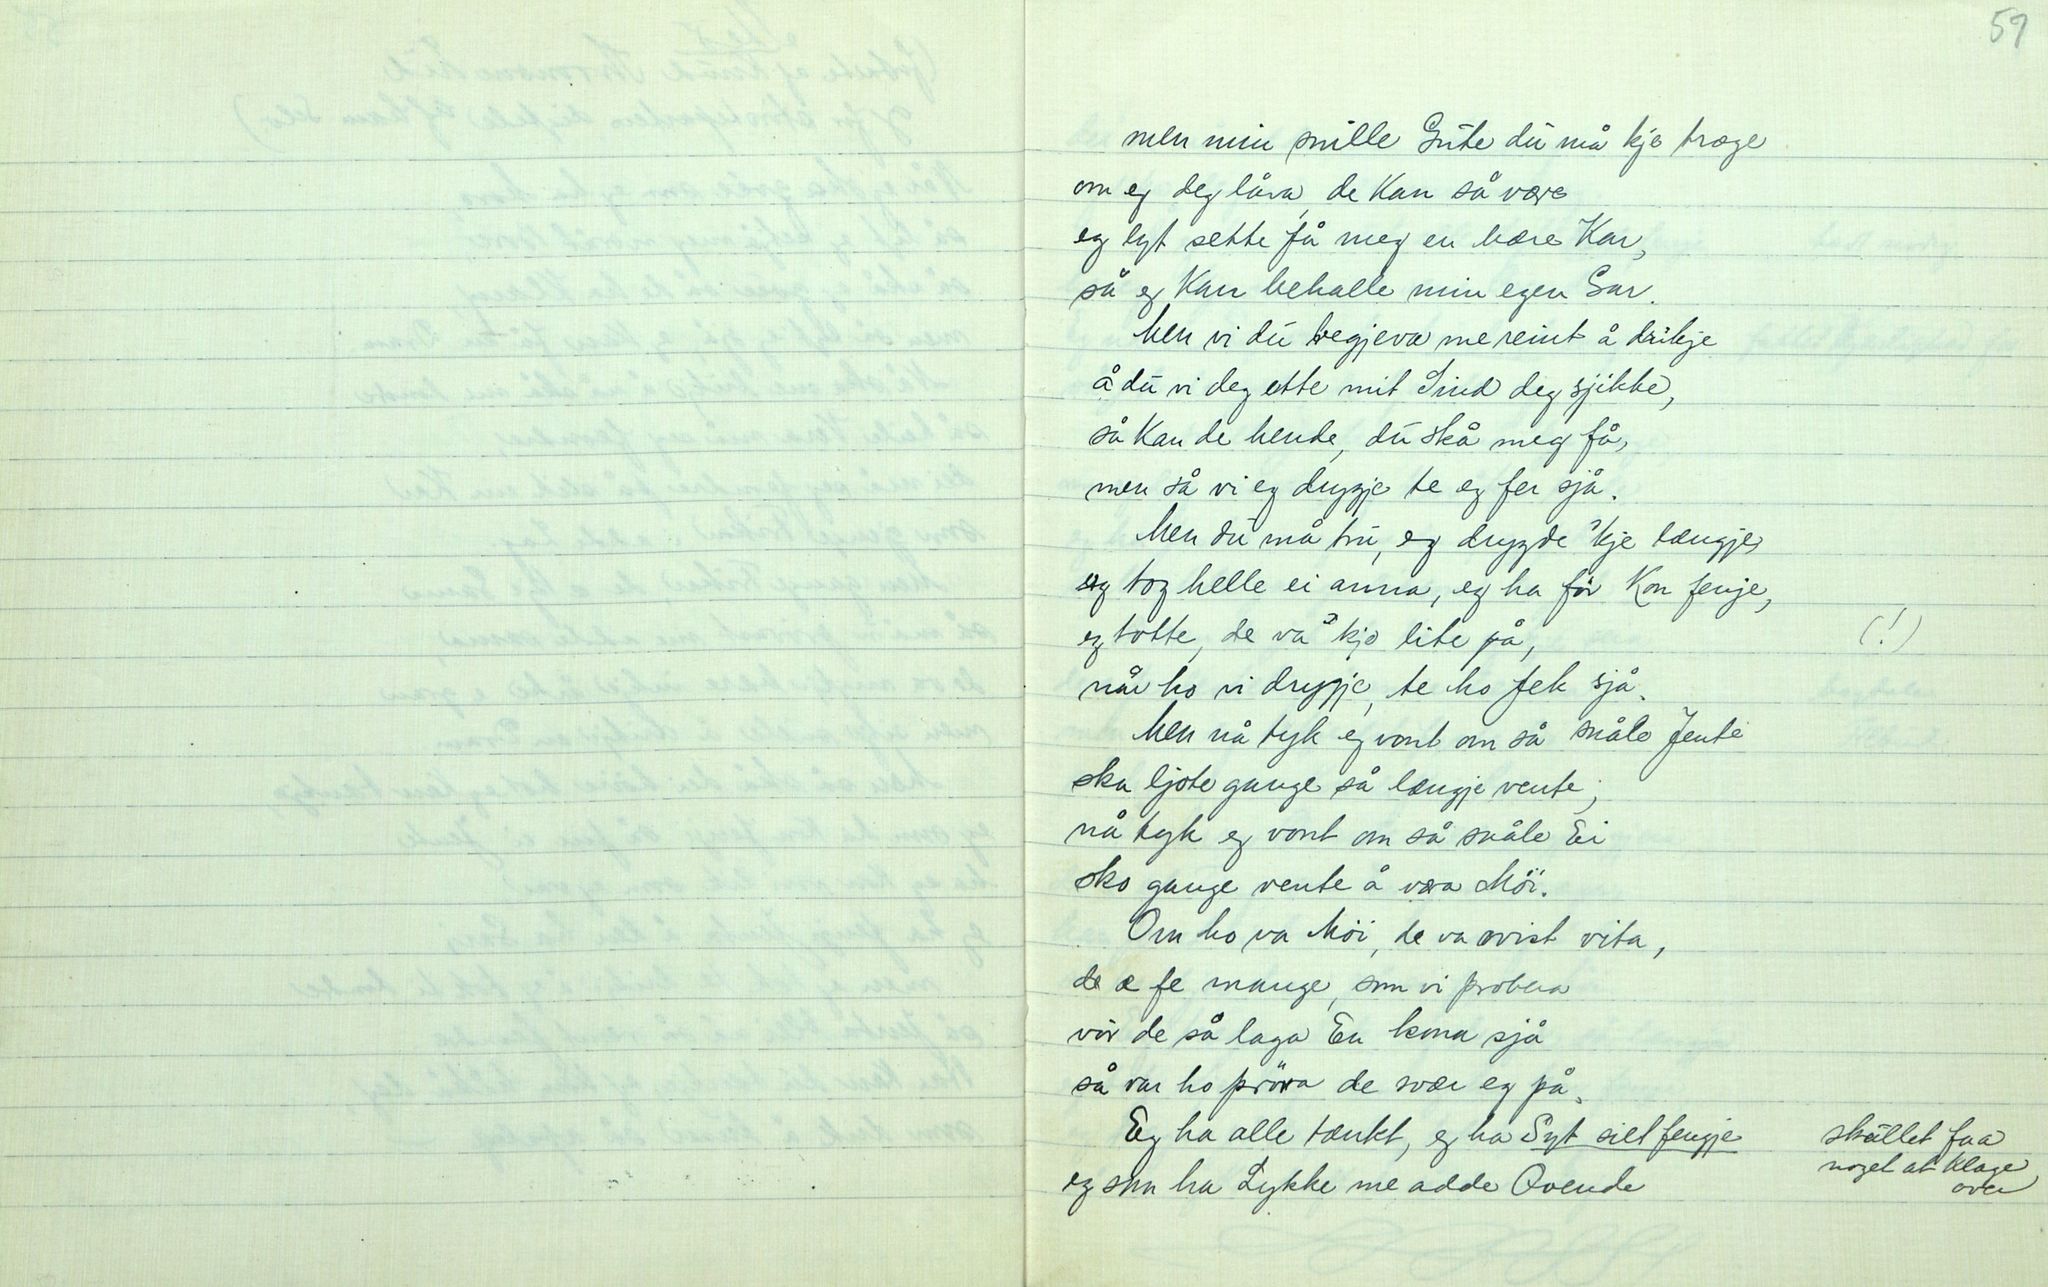 59
men min snille Gute du må kje træge
om eg deg låva, de Kan så være
eg lyt sette få meg en bære Kar,
så eg Kan behalle min egen Gar.
Men vi du begjeva me reint å drikje
å du vi deg ette mit Sind deg sjikke,
så Kan de hende, du skå meg få,
men så vi eg drygje te eg fer sjå.
Men du må tru, eg drygde 'kje længje
eg tog helle ei anna, eg ha før Kon fenje,
eg totte, de va 'kje lite på, (!)
når ho vi drygje, te ho fek sjå.
Men nå tyk eg vont om så snåle Jente
ska ljote gange så længje vente;
nå tyk eg vont om så snåle Ei
sko gange vente å være Möi.
Om ho va Möi, de va uvist vita,
de æ fe mange, som vi probera
vör de så laga En kona sjå
så var ho pröva de svær eg på.
Eg ha alle tænkt, eg ha Syt sielt fengje skullet faa
noget at klage
over
eg som ha Lykke me adde Qvende